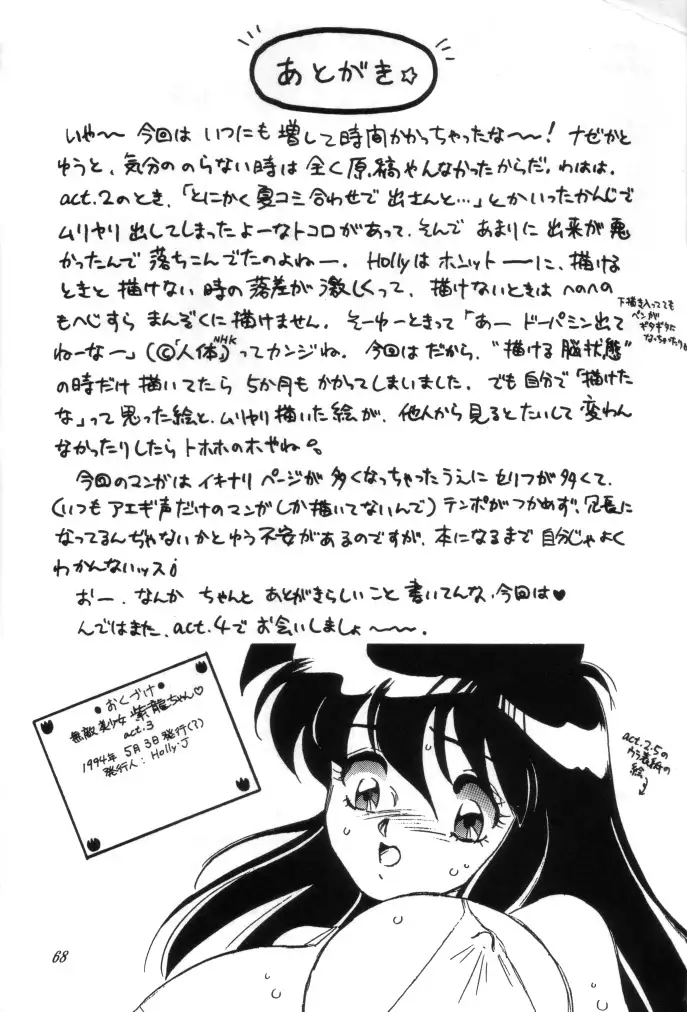 あとがき☆
いや〜〜 今回は いつにも 増して 時間 かかっちゃったな〜〜! ナゼかと
ゆうと、気分の のらない 時は 全く 原稿 やんなかった からだ。わはは。
act.2のとき、「とにかく 夏コミ 合わせで 出さんと…」とかいったかんじで
ムリヤリ 出してしまったよーなトコロがあって、そんで あまりに 出来が 悪
かったんで 落ちこんでたのよねー。Hollyは ホニットーーに、描ける
ときと 描けない 時の 落差が 激しくって、描けないときは へのへの
もへじすら まんぞくに 描けません。そーゆーときって「あー ドーパミン出て
ねーなー」(©「人体」NHK)ってカンジね。今回は だから、"描ける 脳状態"
の時だけ 描いてたら 5か月も かかってしまいました。でも 自分で「描けた
な」って 思った絵と、ムリヤリ 描いた 絵が、他人から 見ると たいして 変わん
なかったりしたら トホホのホやね。
下描き入ってても
ペンが
ギタギタに
なっちゃったり
今回のマンガは イキナリ ページが 多くなっちゃったうえに セリフが 多くて、
(いつも アエギ声だけの マンガしか 描いてないんで) テンポがつかめず、冗長に
なってるんぢゃないかとゆう 不安が あるのですが、本になるまで 自分じゃ よく
わかんないッス
おー、なんか ちゃんと あとがきらしいこと 書いてんな、今回は♥
んではまた、act.4で お会いしましょ〜〜〜。
●おくづけ●
無敵美少女 紫龍ちゃん♡
act.3
1994年 5月3日発行(?)
発行人：Holly・J
act.2.5の
ウラ表紙の
絵
68